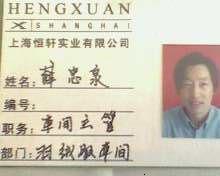 HENGXUAN
SHANGHAI
上海恒轩实业有限公司
姓名:薛忠泉
编号:
职务:车间主管
部门:羽绒服车间